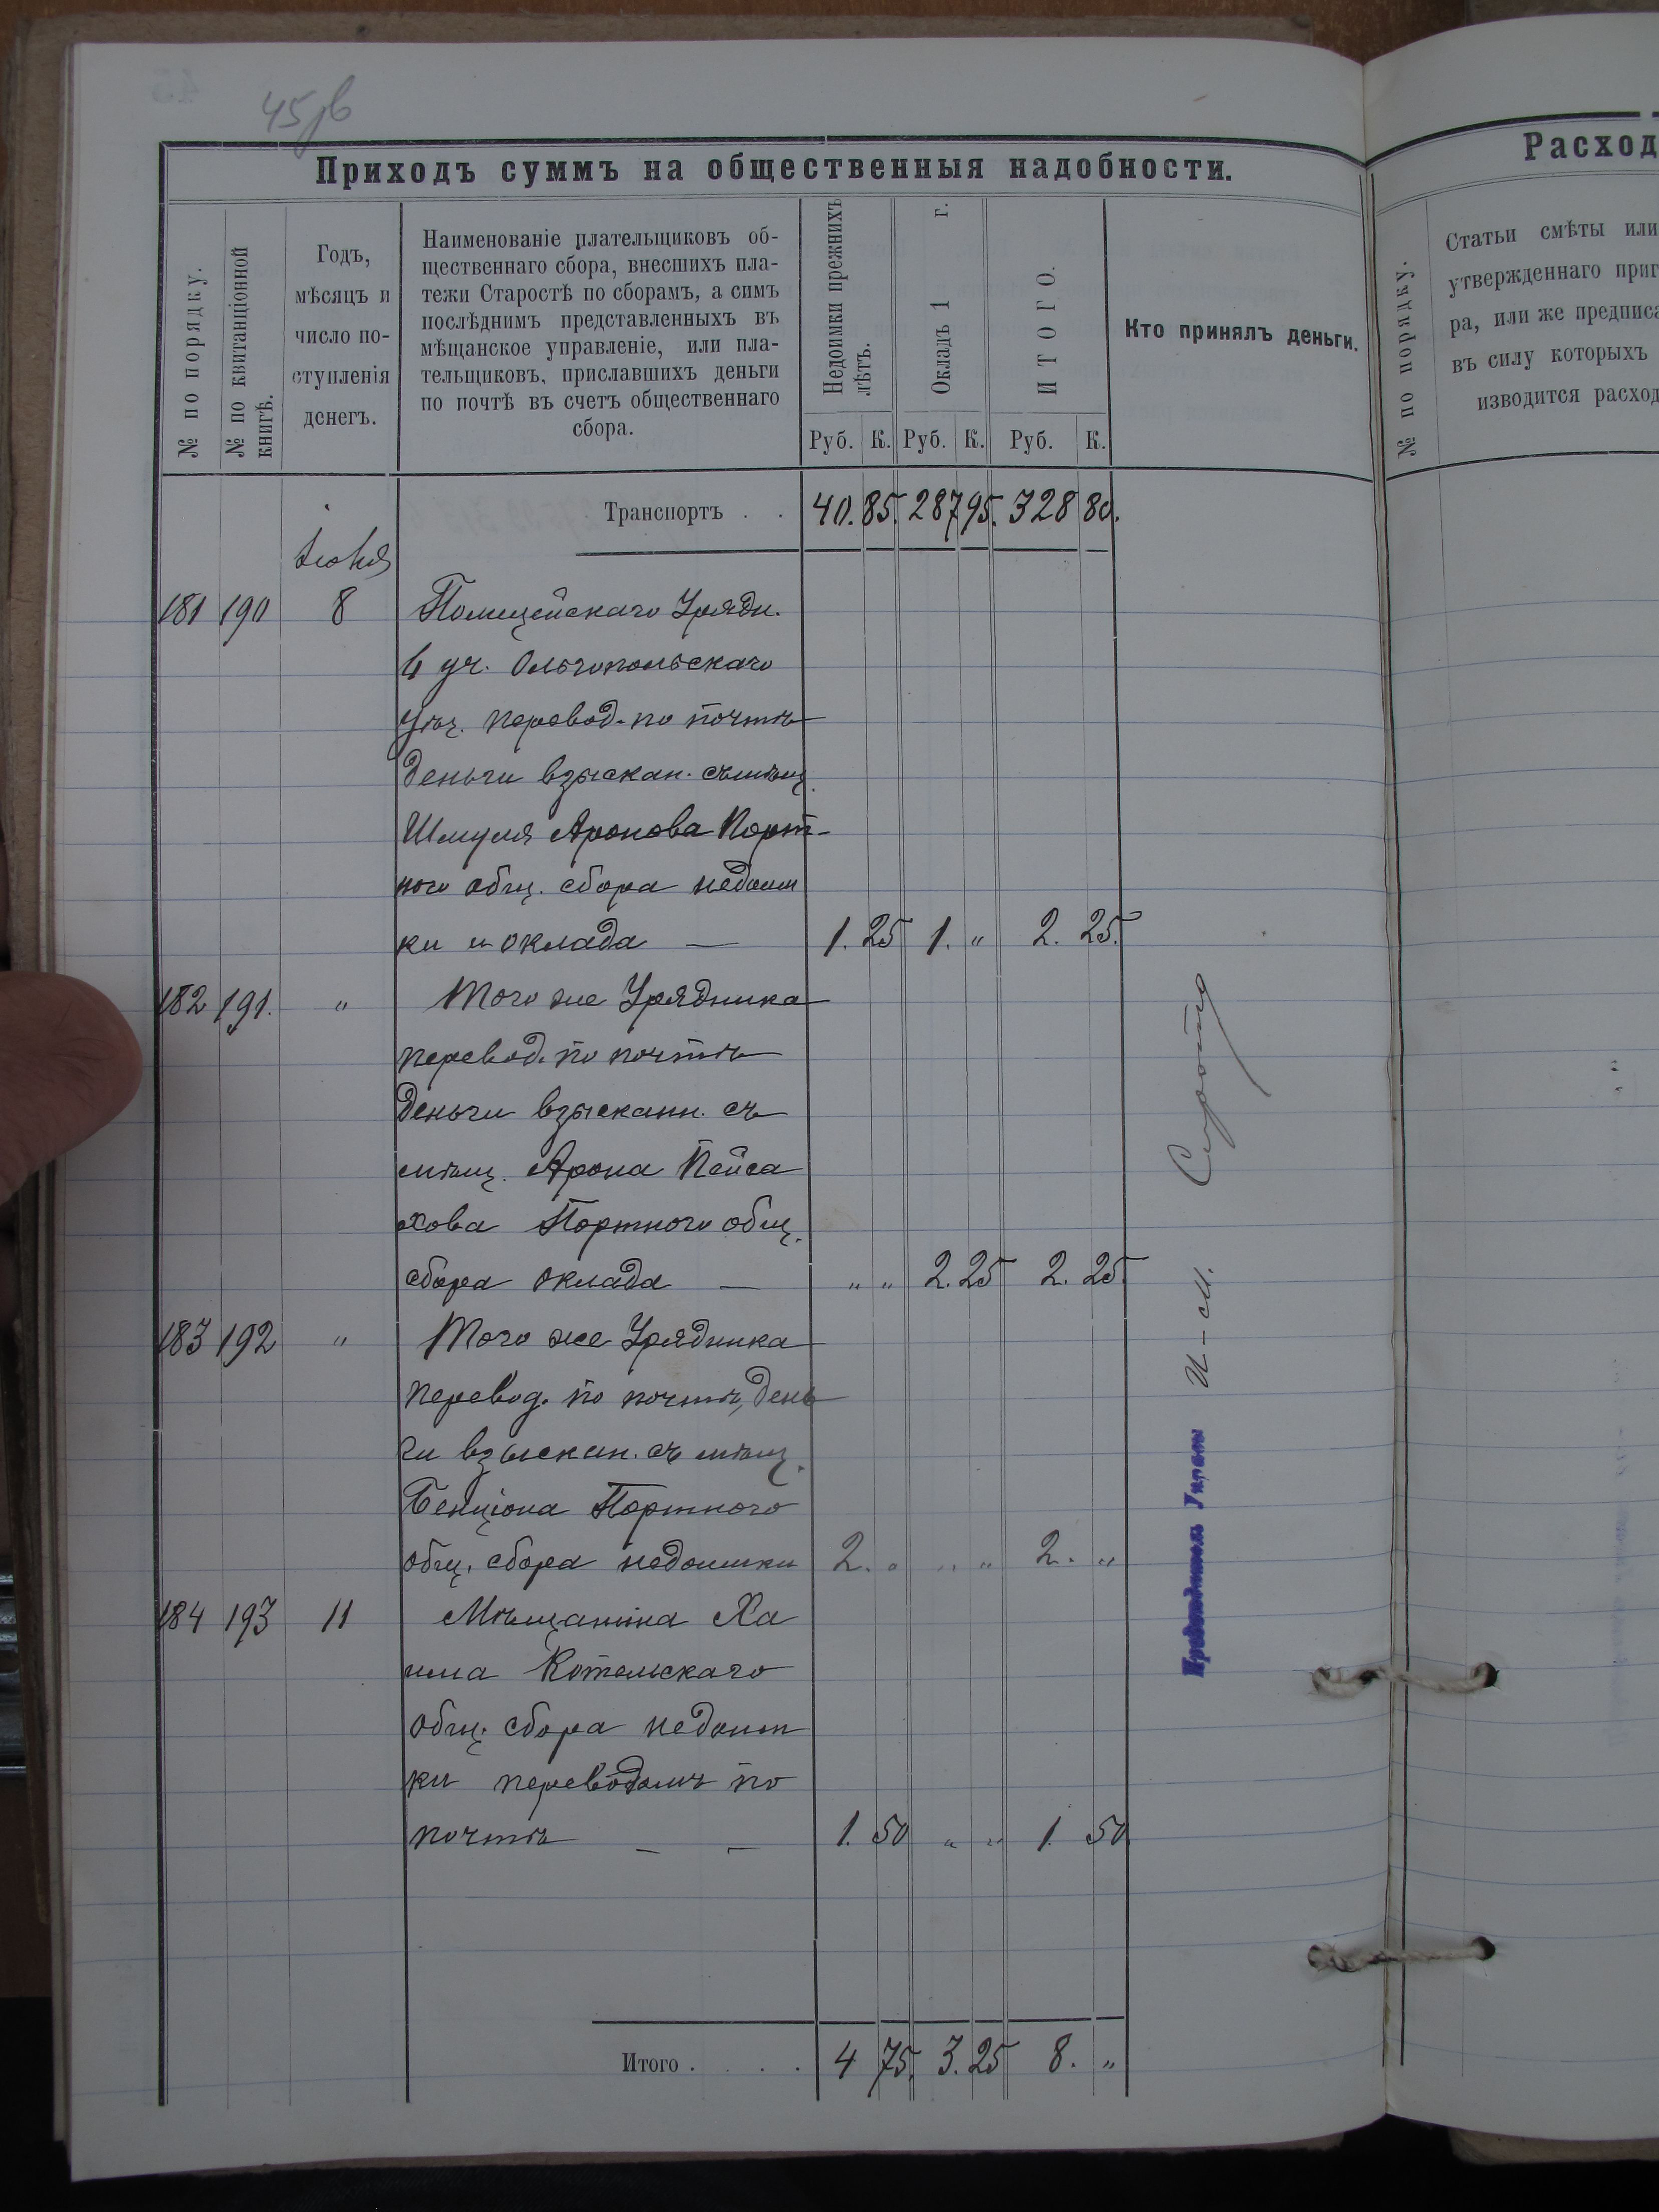 45 об
Приходъ суммъ на общественныя надобности.
№ по порядку.
№ по квитанціонной
книгѣ.
Годъ,
мѣсяцъ и
число по-
ступленія
денегъ.
Наименованіе плательщиковъ об-
щественнаго сбора, внесшихъ пла-
тежи Старостѣ по сборамъ, а симъ
послѣднимъ представленныхъ въ
мѣщанское управленіе, или пла-
тельщиковъ, приславшихъ деньги
по почтѣ въ счетъ общественнаго
сбора.
Недоимки прежнихъ
лѣтъ.
Окладъ 1 г.
ИТОГО.
Кто принялъ деньги.
Руб. К. Руб. К. Руб. К.
Транспортъ . . 40. 85. 287 95. 328 80.
Іюня
181 190 8 Полицейскаго Урядн.
уч. Ольгопольскаго
уѣз. перевод. по почтѣ
деньги взыскан. съ мѣщ.
Шмуля Аронова Порт-
ного общ. сбора недоим
ки и оклада — 1. 25 1. " 2. 25.
182 191. " Того же Урядника
перевод. по почтѣ
деньги взысканн. съ
мѣщ. Арона Пейса
хова Портного общ.
сбора оклада — " " 2. 25 2. 25.
183 192 " Того же Урядника
перевод. по почтѣ, день
ги взыскан. съ мѣщ.
Бенціона Портного
общ. сбора недоимки 2. " " " 2. "
184 193 11 Мѣщанина Ха
има Котельскаго
общ. сбора недоим
ки переводомъ по
почтѣ — — 1. 50 " " 1. 50
Итого . . . . 4 75. 3. 25 8. "
Предсѣдатель Управы И-М. Сирота
Расход
№ по порядку.
Статьи смѣты или
утвержденнаго приг
ра, или же предписа
въ силу которыхъ
изводится расход